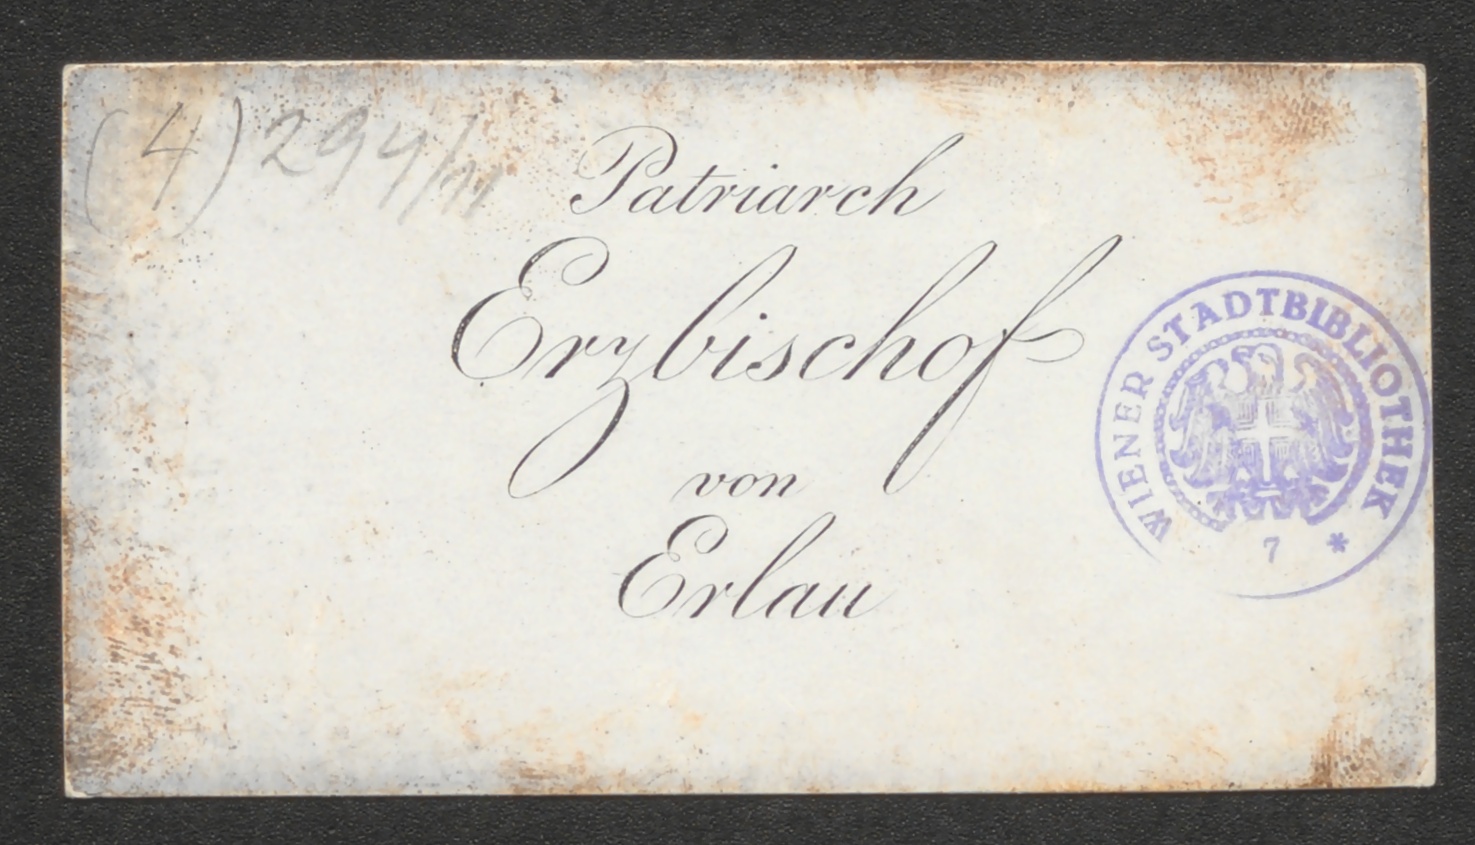 (4) 294/11
Patriarch
Erzbischof
von
Erlau
WIENER STADTBIBLIOTHEK
7 *